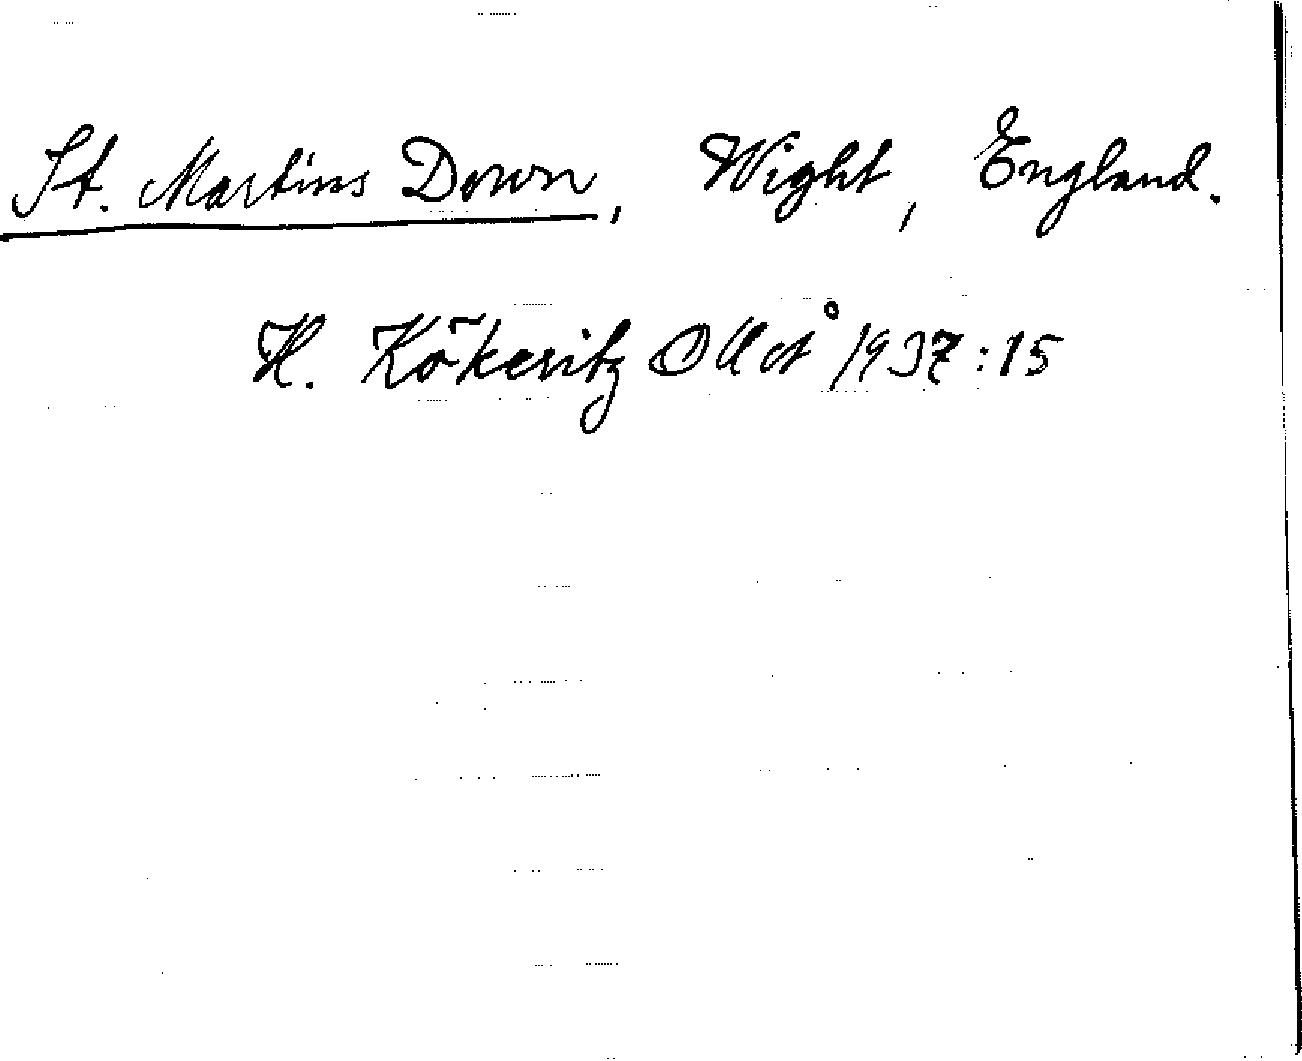 St. Martins Down, Wight, England.
H. Kökeritz 1937:15